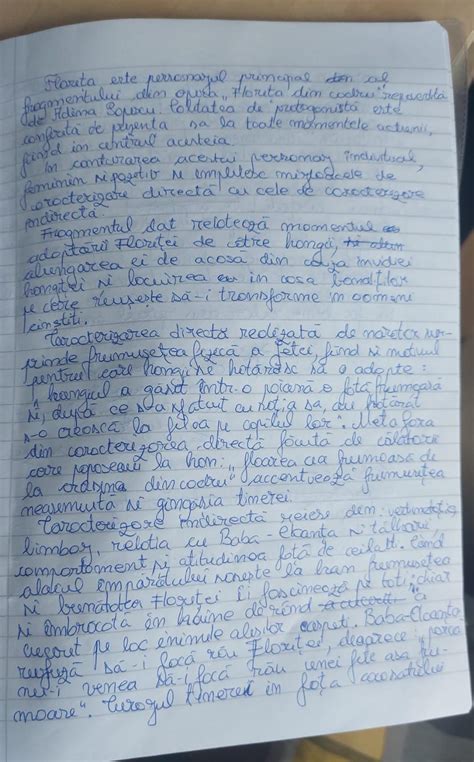 Florița este personajul principal al
fragmentului din opera „Florița din codru” repovestită
de Elena Popescu. Calitatea de protagonistă este
conferită de prezența sa la toate momentele acțiunii,
fiind în centrul acesteia.
În conturarea acestui personaj individual,
feminin și pozitiv se împletesc mijloacele de
caracterizare directă cu cele de caracterizare
indirectă.
Fragmentul dat relatează momentul
adoptării Floriței de către hangii,
alungarea ei de acasă din cauza invidiei
hangiței și locuirea în casa bandiților
pe care reușește să-i transforme în oameni
cinstiți.
Caracterizarea directă realizată de narator sur-
prinde frumusețea fizică a fetei, fiind și motivul
pentru care hangii se hotărăsc să o adopte:
„hangiul a găsit într-o poiană o fată frumoasă
și, după ce s-a sfătuit cu soția sa, au hotărât
s-o crească la fel ca pe copilul lor”. Metafora
din caracterizarea directă făcută de călătorii
care poposeau la han: „floarea cea frumoasă de
la din codru” accentuează frumusețea
nemăsurată și gingășia tinerei.
Caracterizare indirectă reiese din: vestimentație,
limbaj, relația cu Baba-Cloanța și tâlharii
comportament și atitudinea față de ceilalți. Când
alaiul împăratului sosește la han frumusețea
și bunătatea Floriței îi fascinează pe toți, chiar
și îmbrăcată în haine de rând a
cucerit pe loc inimile aleșilor oaspeți. Baba-Cloanța
refuză să-i facă rău Floriței, deoarece „parcă
nu-i venea să-i facă rău unei fete așa fru-
moase”. Curajul tinerei în fața